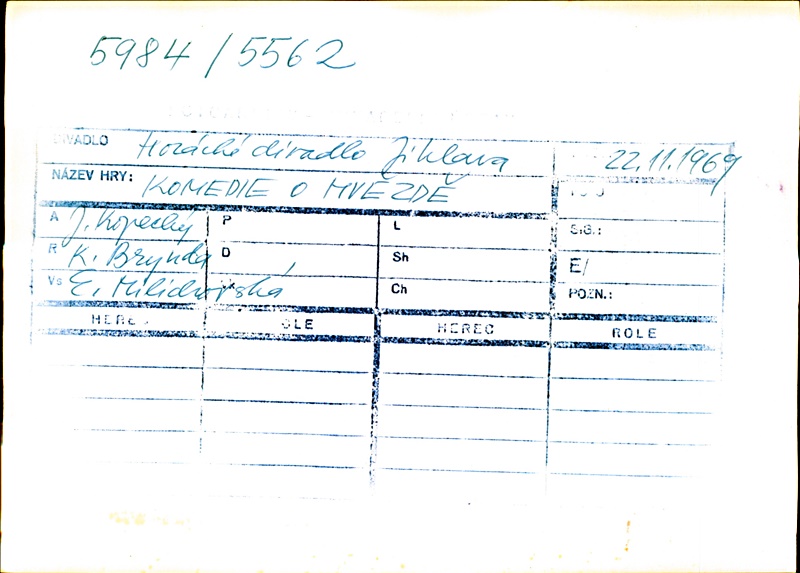 5984/5562
DIVADLO Horácké divadlo Jihlava 22.11.1969
NÁZEV HRY: KOMEDIE O HVĚZDĚ
A J. Kopecký P L S.G.:
R K. Brynda D Sh E/
Vs E. Milichovská Ch POZN.:
HEREC ROLE HEREC ROLE